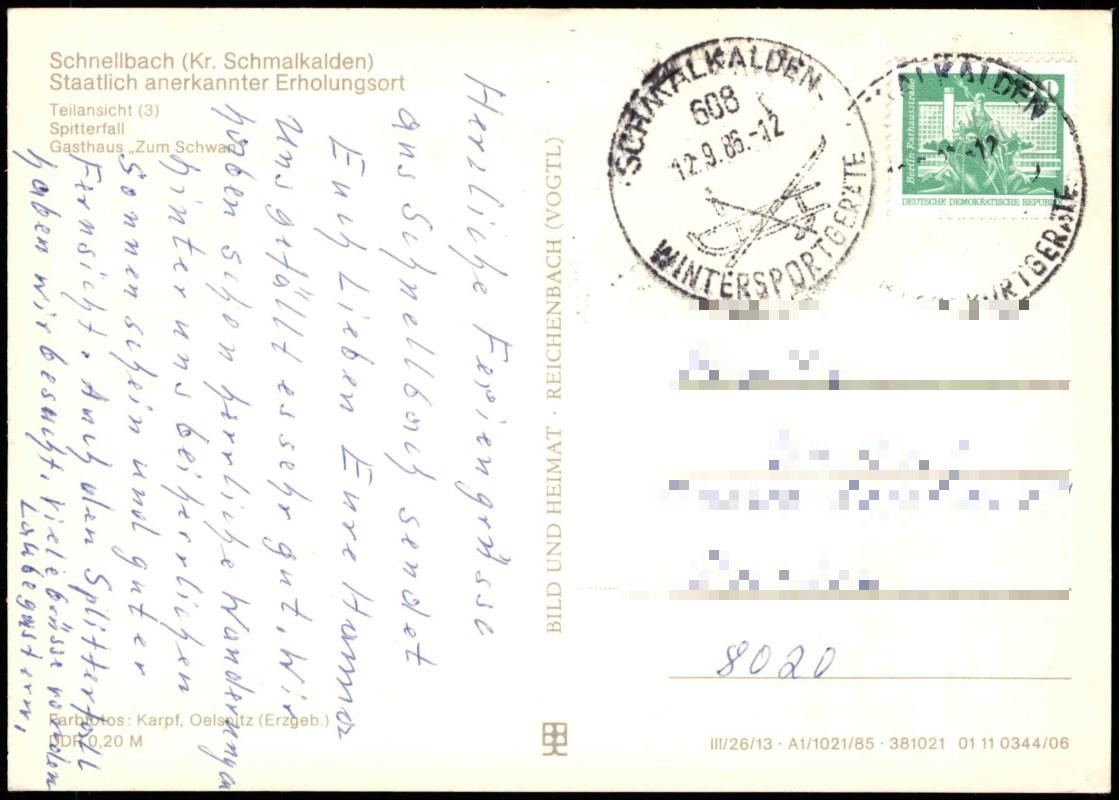 Schnellbach (Kr. Schmalkalden)
Staatlich anerkannter Erholungsort
Teilansicht (3)
Spitterfall
Gasthaus „Zum Schwan“
Herzliche Feriengrüsse
aus Schnellbach sendet
Euch Lieben Eure Hanna
Uns gefällt es sehr gut. Wir
haben schon herrliche Wanderungen
hinter uns bei herrlichen
Sonnenschein und guter
Fernsicht. Auch den Splitterfall
haben wir besucht. Viele Grüsse von den
Laubegastern.
Farbfotos: Karpf, Oelsnitz (Erzgeb.)
DDR 0,20 M
BILD UND HEIMAT · REICHENBACH (VOGTL)
SCHMALKALDEN
608
12.9.86.-12
WINTERSPORTGERÄTE
Berlin, Rathausstraße
10
DEUTSCHE DEMOKRATISCHE REPUBLIK
ALKALDEN
-12
ORTGERÄTE
8020
III/26/13 · A1/1021/85 · 381021 01 11 0344/06